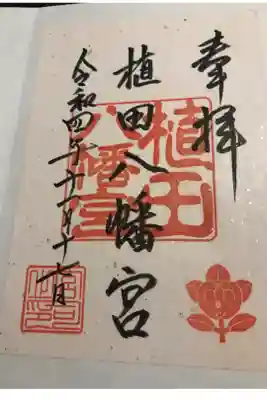 奉拝
植田八幡宮
令和四年十一月十七日
植田八幡宮